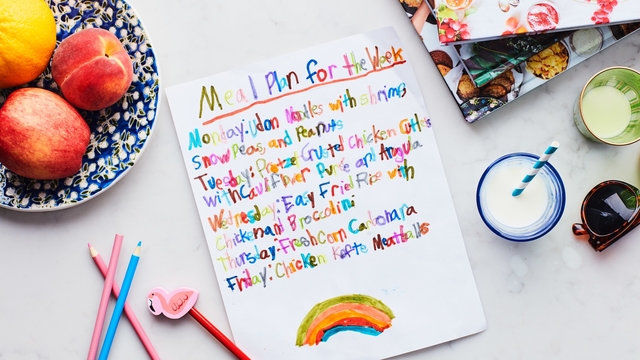 Meal Plan for the Week
Monday: Udon Noodles with shrimp,
Snow Peas, and Peanuts
Tuesday: Pretzel Crusted Chicken Cutlets
with Cauliflower Purée and Arugula
Wednesday: Easy Fried Rice with
Chicken and Broccolini
Thursday: Fresh Corn Carbonara
Friday: Chicken Kofta Meatballs